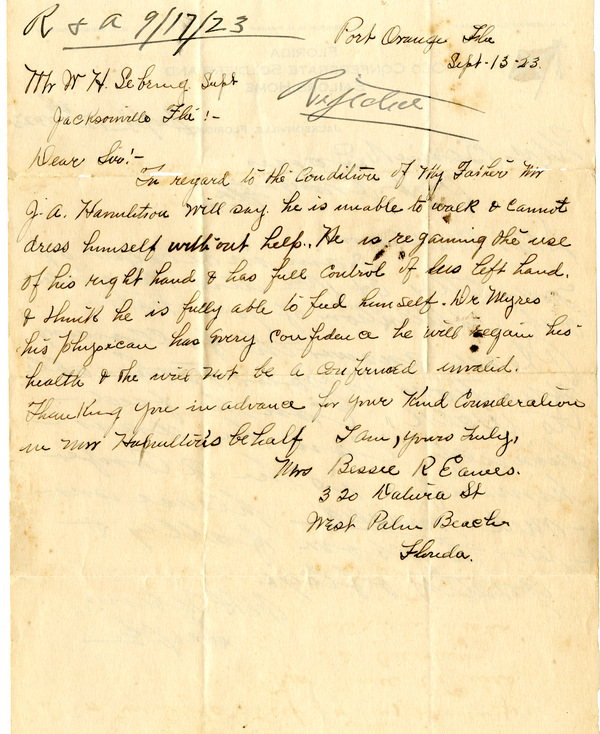 R & A 9/17/23
Port Orange Fla
Sept-13-23.
Mr W. H. Sebring Supt
Rejected
Jacksonville Fla!-
Dear Sir!-
In regard to the Condition of My Father Mr
J. A. Hamiltson Will say he is unable to walk & cannot
dress himself without help. He is regaining the use
of his right hand & has full control of his left hand.
& think he is fully able to feed himself. Dr Myres
his physican has every confidence he will regain his
health & he will not be a confirmed invalid.
Thanking you in advance for your Kind Consideration
in Mr Hamilton's behalf I am, yours truly,
Mrs Bessie R Eames.
320 Datura St
West Palm Beach
Florida.